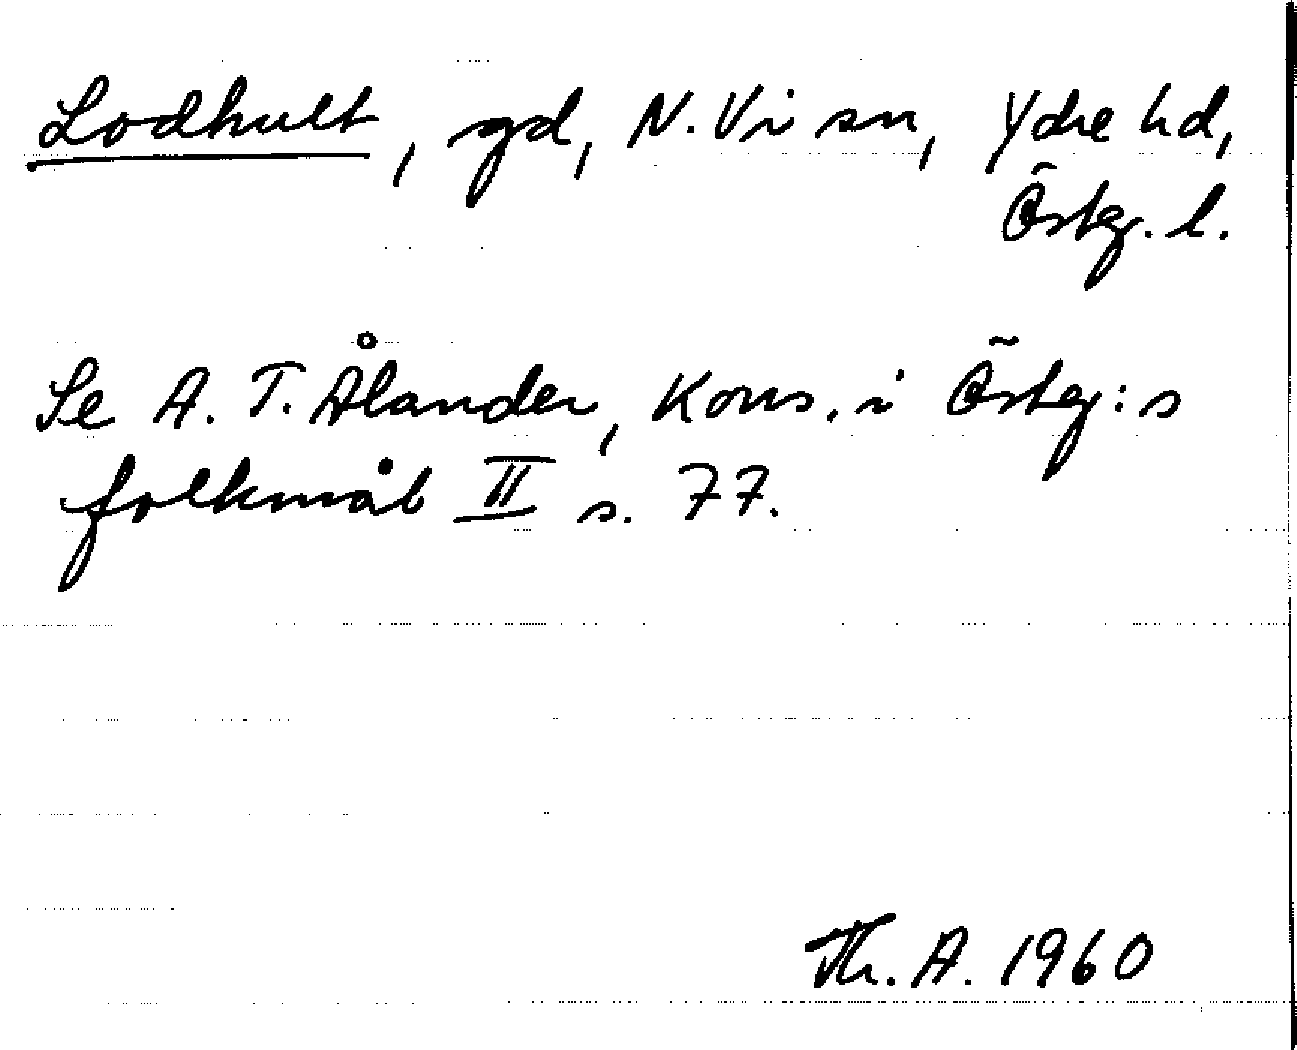 Lodhult, gd, N. Vi sn, Ydre hd,
Östg. l.
Se A. T. Ålander, Kons. i Östg:s
folkmål II s. 77.
Th. A. 1960